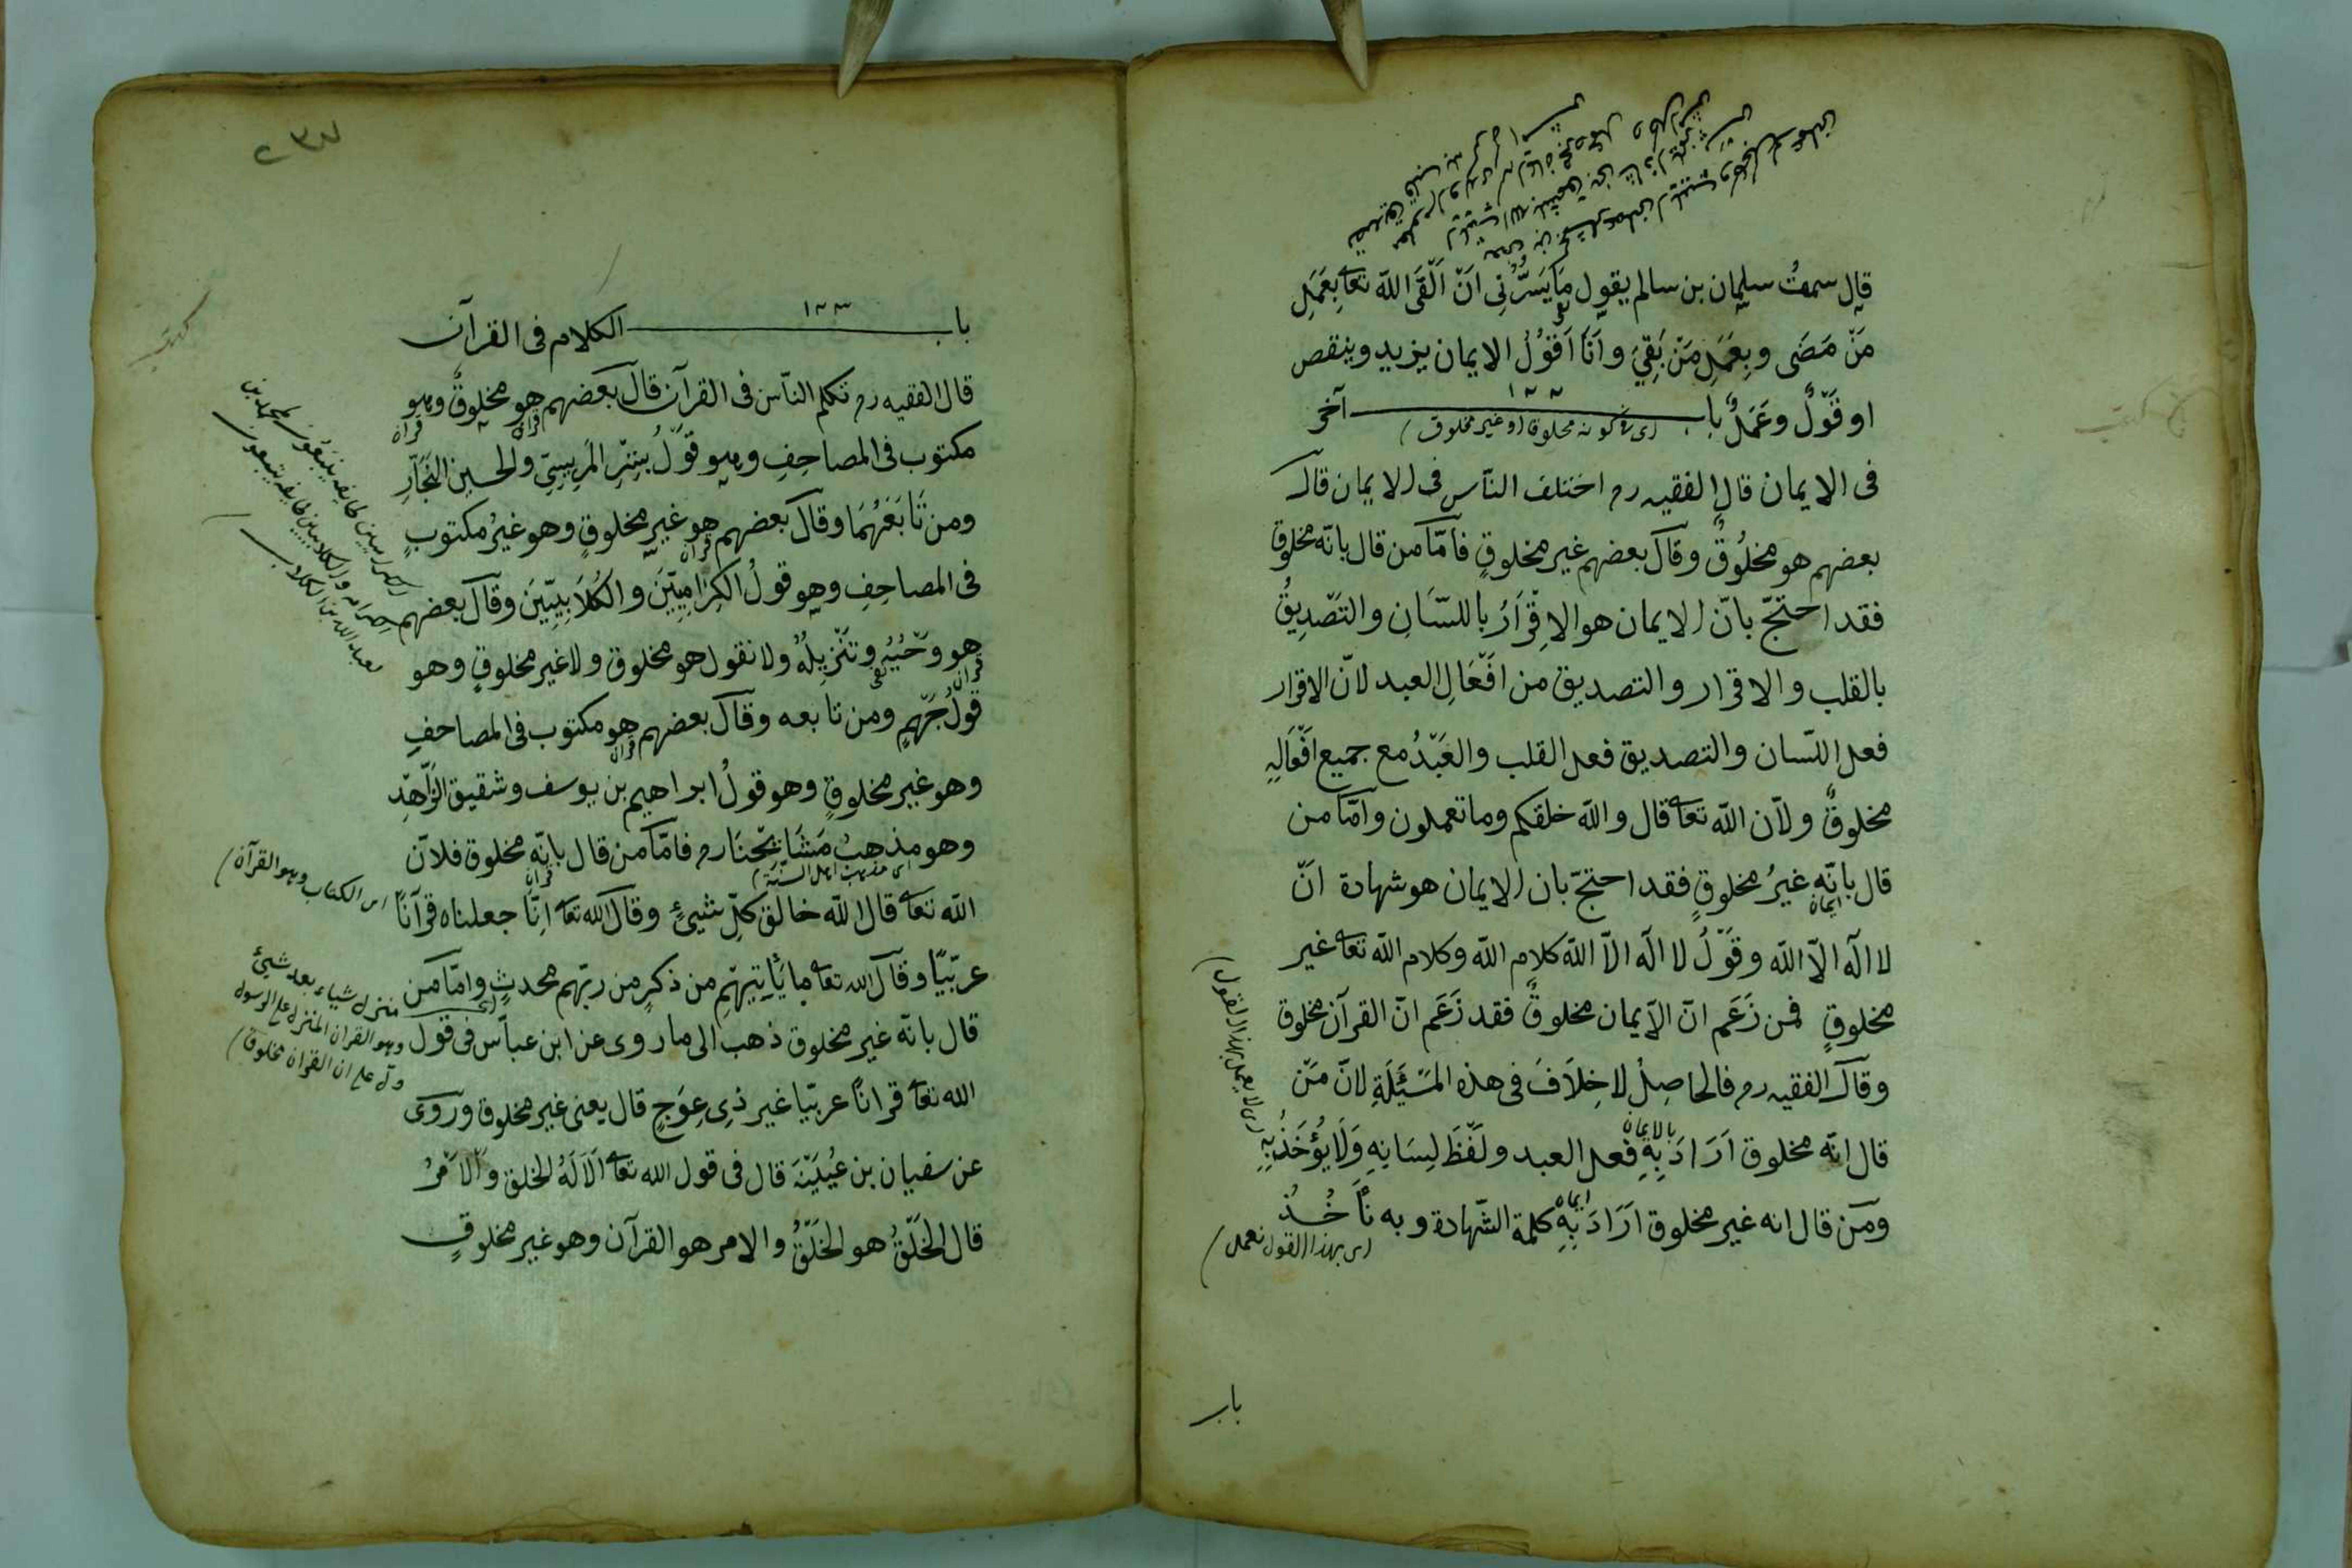 قال سمعتُ سليمان بن سالم يقول مَا يَسُرُّنِى اَنْ اَلْقَى اللّه تعا بِعَمَلِ
مَنْ مَضَى وبِعَمَلِ مَنْ بَقِىَ وانَا اَقُوْلُ الايمان يزيد وينقص
او قَوْلٌ وعَمَلٌ بابـــــ ١٢٢ ـــــ آخر
فى الايمان قال الفقيه رح اختلف النّاس فى الايمان قال
بعضهم هو مخلُوقٌ وقال بعضهم غير مخلوقٍ فامّا من قال بانّه مخلوق
فقد احتجّ بانّ الايمان هو الاِقْرَارُ باللسَّانِ والتَّصْدِيقُ
بالقلب والاقرار والتصديق من افْعَالِ العبد لانّ الاقرار
فعل اللسّان والتصديق فعل القلب والعَبْدُ مع جميع افْعَالِهِ
مخلوقٌ ولانّ اللّه تعا قال واللّه خلقكم وما تعملون وامّا من
قال بانّه غيرُ مخلوقٍ فقد احتجّ بان الايمان هو شهادة انّ
لا اله الّا اللّه وقَوْلُ لا اله الّا اللّه كلام اللّه وكلام اللّه تعا غير
مخلوقٍ فمن زَعَم انّ الايمان مخلوقٌ فقد زَعَم انّ القرآن مخلوق
وقال الفقيه رح فالحاصِلُ لا خِلاَفَ فى هذه المَسْئَلَةِ لانّ مَنْ
قال انّه مخلوق اَرَادَ بِهِ فعل العبد ولَفْظَ لِسَانِهِ وَلَا يُؤْخَذُ بِهِ
بالايمان
اى لا يعمل بهذا القول
ومن قال انه غير مخلوق اَرَادَ بِهِ كلمة الشّهادة وبه نَأْخُذُ
اى بهذا القول نعمل
باب
٢٣٧
بابـــــ ١٢٣ ـــــ الكلام فى القرآن
قال الفقيه رح تكلم النّاس فى القرآن قال بعضهم هو مخلوقٌ وهو
مكتوب فى المصاحِفِ وهو قَوْلُ بِشْرِ المَرِيسِىِّ والحسين النَجَّارِ
ومن تَابَعَهُمَا وقال بعضهم هو غير مخلوقٍ وهو غيرُ مكتوبٍ
فى المصاحِفِ وهو قولُ الكِرَامِيِّينَ والكُلاَبِيِّينَ وقال بعضهم
هو وَحْيُهُ وتَنْزِيلُهُ ولا نقول هو مخلوق ولا غير مخلوقٍ وهو
قولُ جَهْمٍ ومن تابعه وقال بعضهم هو مكتوب فى المصاحفِ
وهو غير مخلوقٍ وهو قولُ ابراهيم بن يوسف وشقيق الزَّاهِدِ
وهو مذهبُ مَشَايِخِنَا رح فامّا من قال بانّه مخلوق فلانّ
اى مذهب اهل السنّة
اللّه تعا قال اللّه خالق كلّ شيئٍ وقال اللّه تعا اِنّا جعلناه قرآناً
اى الكتاب وهو القرآن
عربّيًا وقال اللّه تعا ما يَأْتِيهِم من ذكرٍ من ربّهم محدثٍ وامّا من
منزل شياء بعد شيئ
وهو القران المنزل على الرسول
دلّ على ان القران مخلوق
قال بانّه غير مخلوق ذهب الى ما روى عن ابن عباّس فى قول
اللّه تعا قراناً عربيّا غير ذِى عِوَجٍ قال يعنى غير مخلوق وروى
عن سفيان بن عُيَيْنَةَ قال فى قول اللّه تعا اَلَا لَهُ الخلق والاَمْرُ
قال الخَلْقُ هو الخَلْقُ والامر هو القرآن وهو غير مخلوقٍ